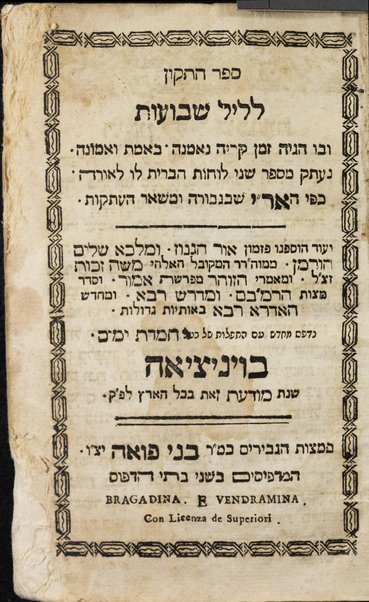 ספר התקון
לליל שבועות
ובו הגיה זמן קריה נאמנה · באמת ואמונה ·
נעתק מספר שני לוחות הברית לו לאורה ·
כפי האר״י שבגבורה ומשאר העתקות ·
ועוד הוספנו פזמון אור הגנוז · ומלכא שלים
הורמן · ממוה׳רר המקובל האלהי משה זכות
זצ״ל · ומאמרי הזוהר מפרשת אמור · וסדר
מצות הרמ׳במ · ומדרש רבא · ומחדש
האדרא רבא באותיות גדולות ·
נדפס מחדש עם התפלות של חמדת ימים ·
בויניציאה
שנת מודעת זאת בכל הארץ לפ״ק ·
במצות הגבירים כמ״ר בני פואה יצ״ו ·
המדפיסים בשני בתי הדפוס
BRAGADINA . E VENDRAMINA .
Con Licenza de Superiori .